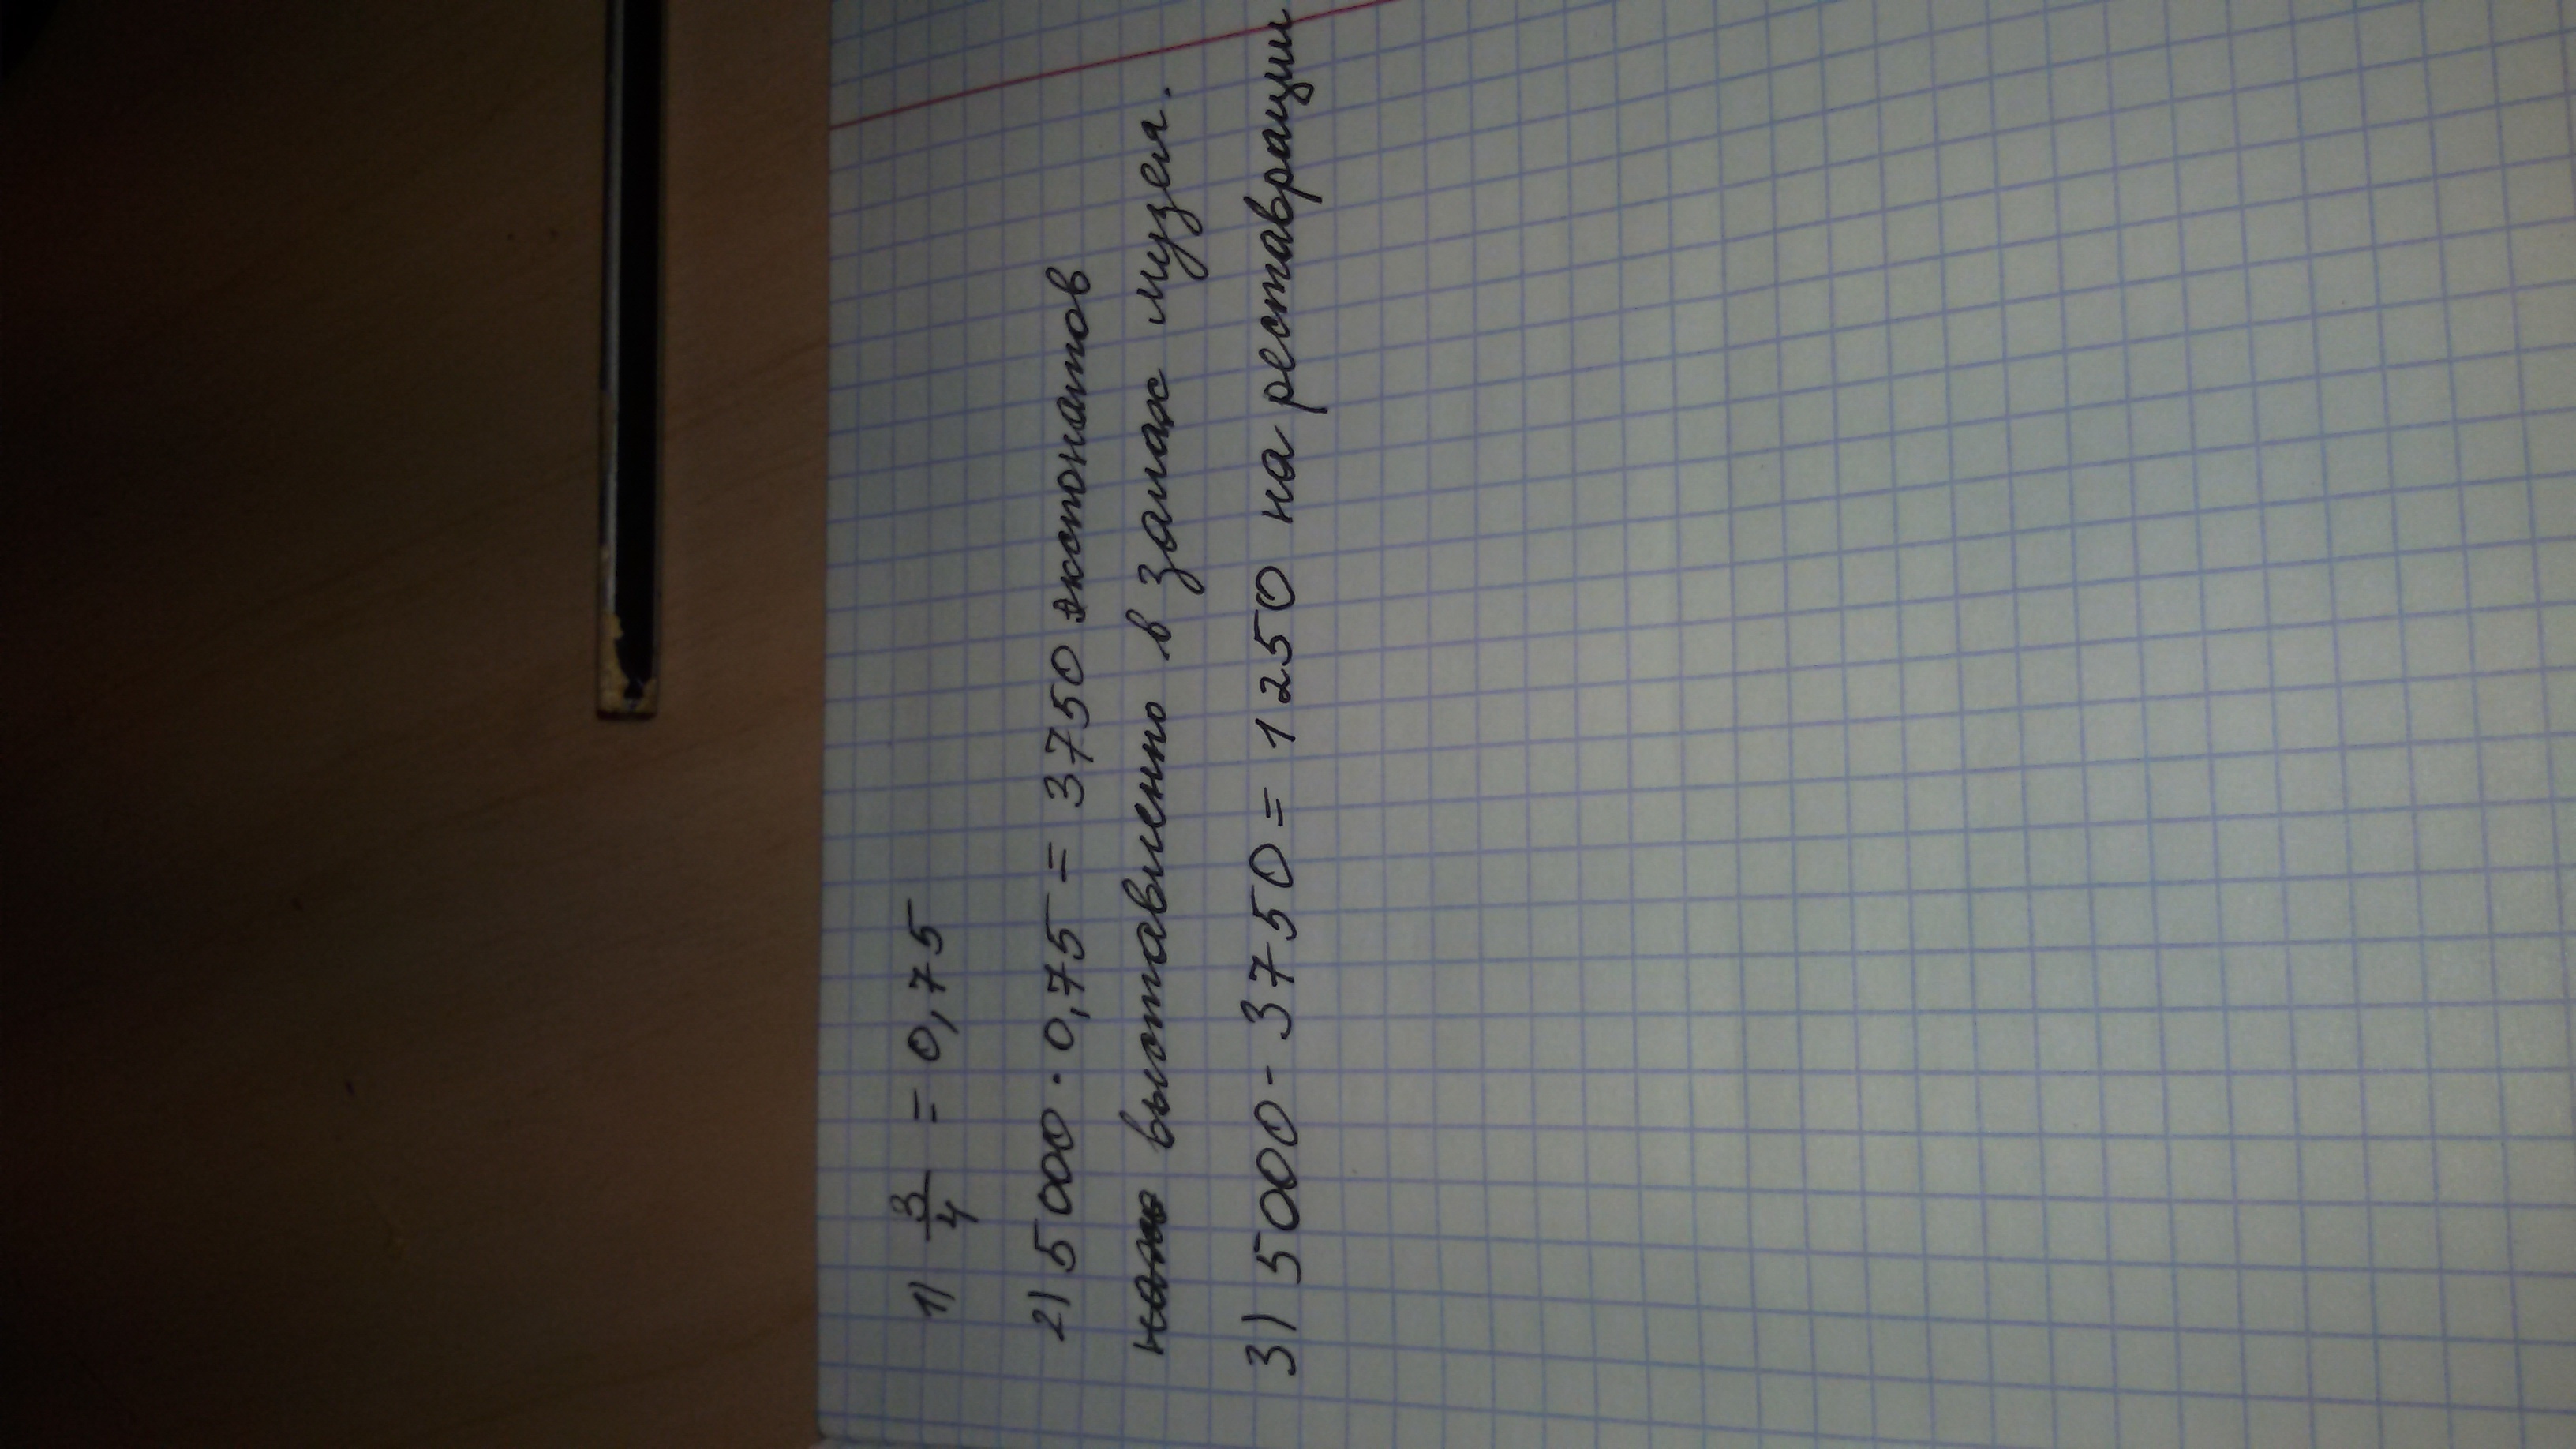 1) 3/4 = 0,75
2) 5000 · 0,75 = 3750 экспонатов
выставленно в залах музея.
3) 5000 - 3750 = 1250 на реставрации